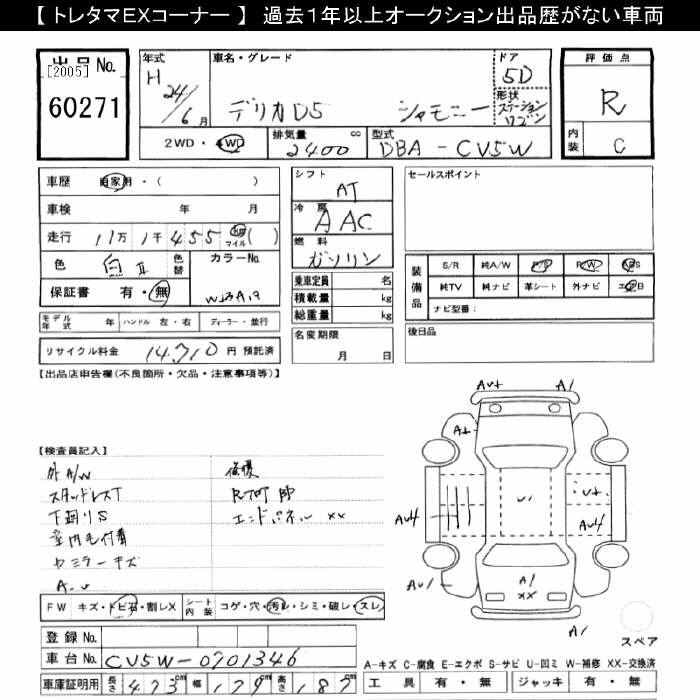 【 トレタマEXコーナー 】 過去1年以上オークション出品歴がない車両
出品 No.
[2005]
60271
年式
H 24/6 月
車名・グレード
デリカD5 シャモニー
ドア
5D
形状
ステーションワゴン
2WD・4WD
排気量 cc
2400
型式
DBA-CV5W
評価点
R
内装
C
車歴 自家用・( )
車検 年 月
走行 11万 1千 455 km マイル ( )
色 白II 色替
カラーNo.
W13A19
保証書 有・無
モデル年式 年 ハンドル 左・右 ディーラー・並行
リサイクル料金 14,710 円 預託済
シフト
AT
冷房
AAC
燃料
ガソリン
乗車定員 名
積載量 kg
総重量 kg
名変期限
月 日
セールスポイント
装備品
S/R 純A/W P/S P/W ABS
純TV 純ナビ 革シート 外ナビ エアB
ナビ型番:
後日品
【出品店申告欄(不良箇所・欠品・注意事項等)】
【検査員記入】
外A/W
スタッドレスT
下廻りS
室内毛付着
修復
エンドパネル XX
FW キズ・トビ石・割レX
シート内装 コゲ・穴・汚レ・シミ・破レ・スレ
登録 No.
車台 No. CV5W-0701346
車庫証明用 長さ 473cm 幅 179cm 高さ 187cm
A1
A1
XX
A1
スペア
A-キズ C-腐食 E-エクボ S-サビ U-凹ミ W-補修 XX-交換済
工具 有・無 ジャッキ 有・無